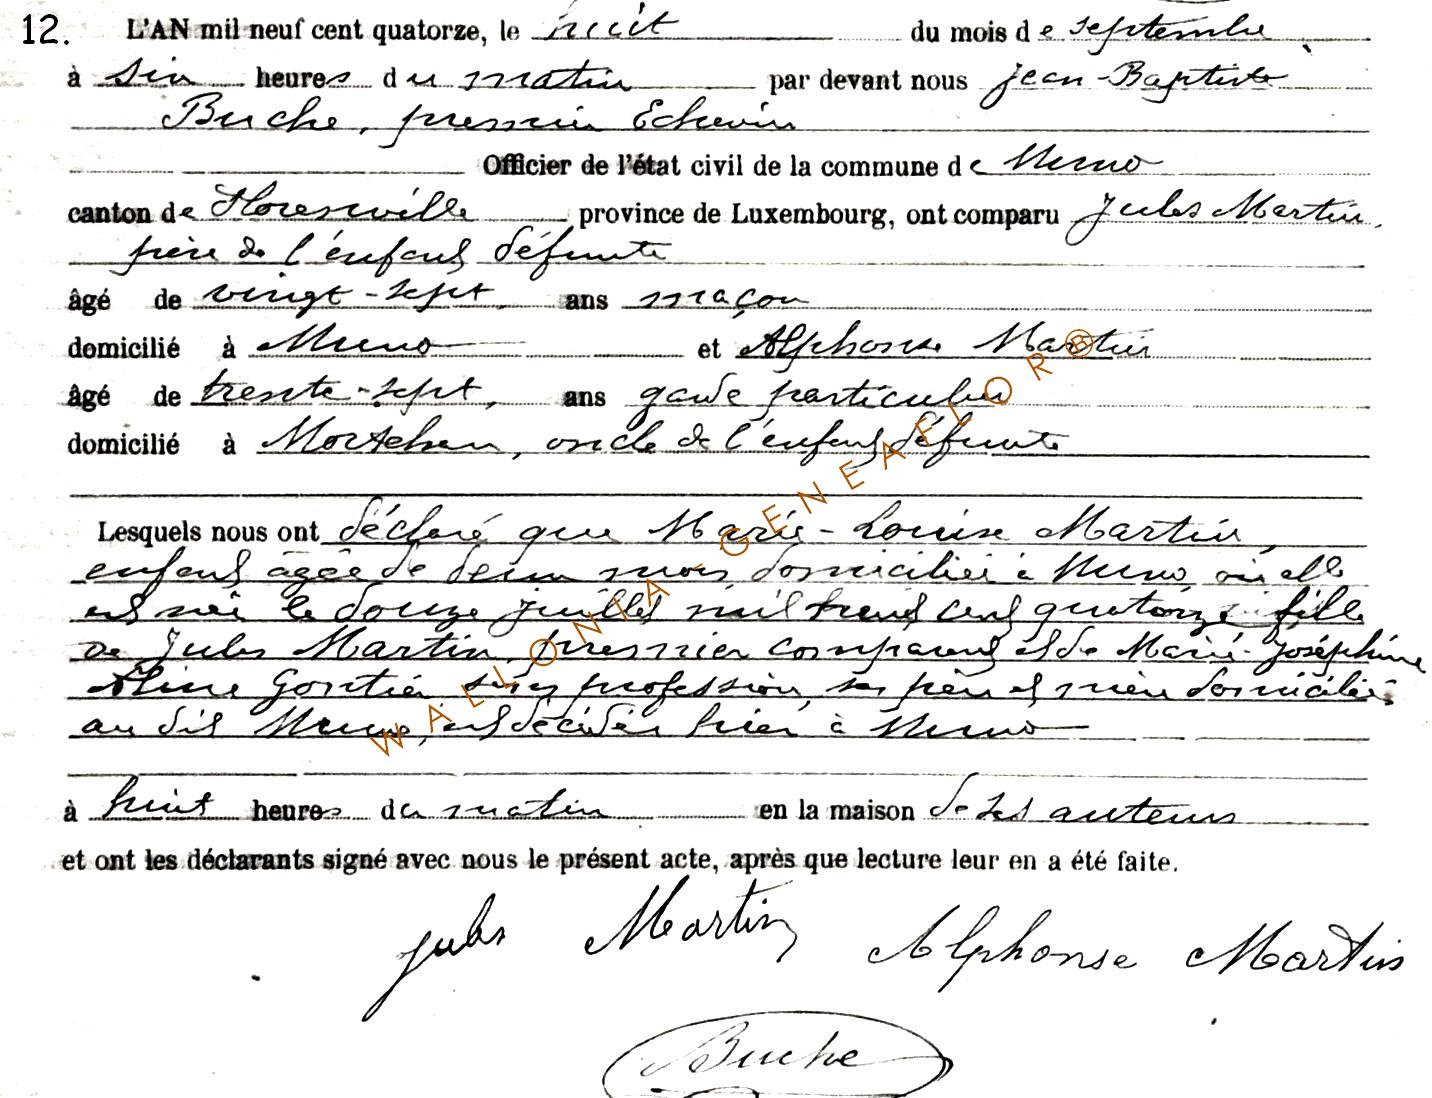 12. L'AN mil neuf cent quatorze, le huit du mois de septembre
à six heures du matin par devant nous Jean-Baptiste
Buche, premier Echevin
Officier de l'état civil de la commune de Muno
canton de Florenville province de Luxembourg, ont comparu Jules Martin,
père de l'enfant défunte
âgé de vingt-sept ans maçon
domicilié à Muno et Alphonse Martin
âgé de trente-sept, ans garde particulier
domicilié à Mortehan, oncle de l'enfant défunte
Lesquels nous ont déclaré que Marie-Louise Martin,
enfant âgée de deux mois domiciliée à Muno, où elle
est née le douze juillet mil neuf cent quatorze fille
de Jules Martin, premier comparant et de Marie-Joséphine
Aline Gontier sans profession, ses père et mère domiciliés
au dit Muno, est décédée hier à Muno
à huit heures du matin en la maison de ses auteurs
et ont les déclarants signé avec nous le présent acte, après que lecture leur en a été faite.
Jules Martin Alphonse Martin
Buche
WALLONIA-GENEAFLOR®